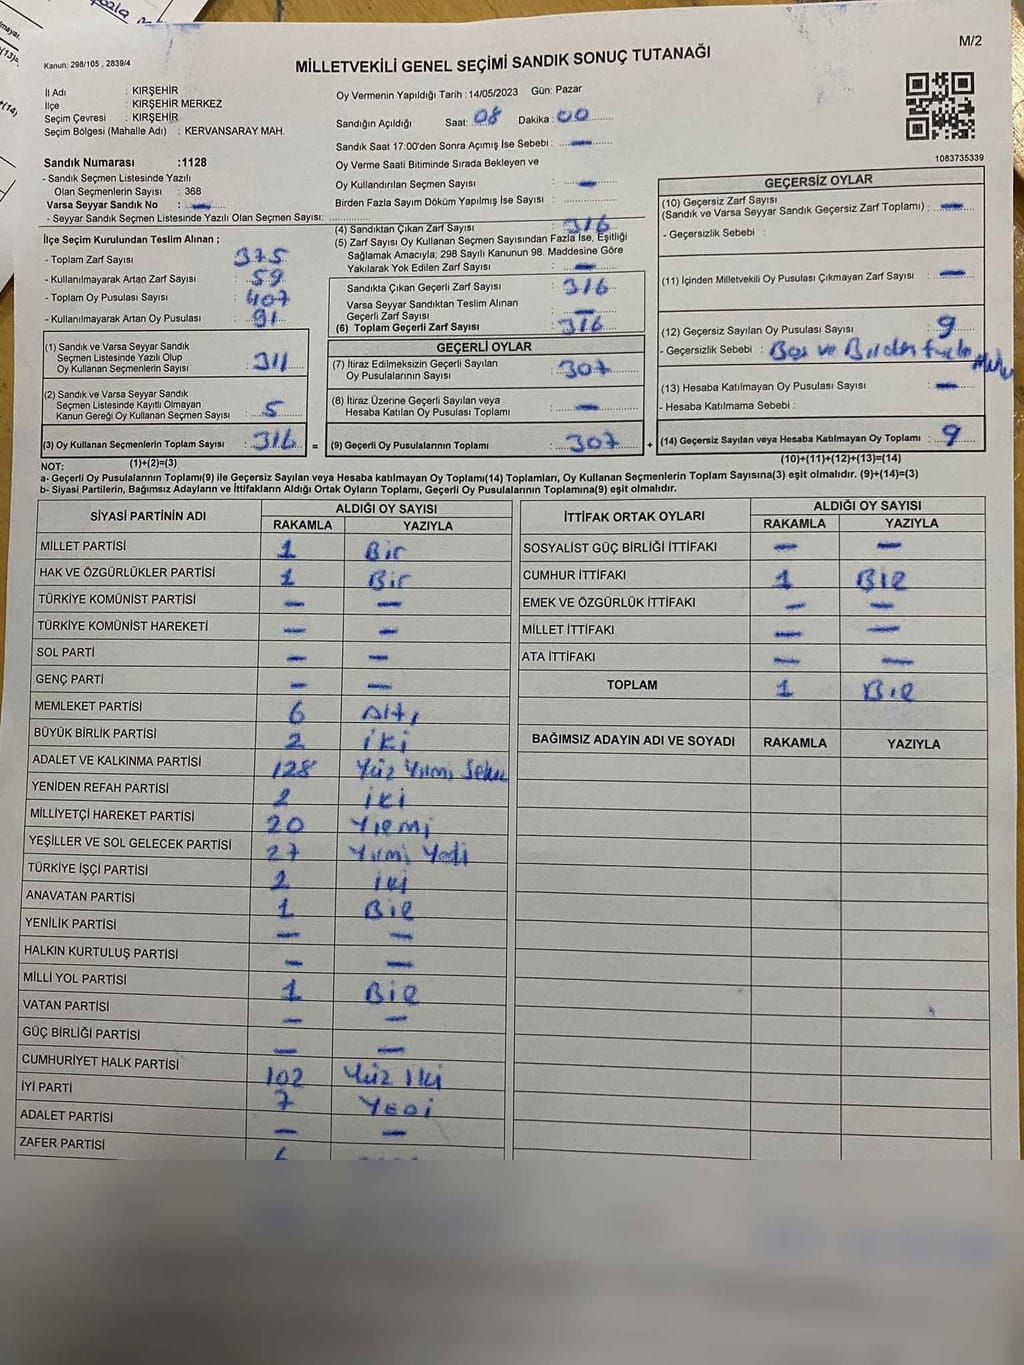 M/2
Kanun: 298/105 , 2839/4
MİLLETVEKİLİ GENEL SEÇİMİ SANDIK SONUÇ TUTANAĞI
İl Adı : KIRŞEHİR
İlçe : KIRŞEHİR MERKEZ
Seçim Çevresi : KIRŞEHİR
Seçim Bölgesi (Mahalle Adı) : KERVANSARAY MAH.
Sandık Numarası :1128
- Sandık Seçmen Listesinde Yazılı
Olan Seçmenlerin Sayısı : 368
Varsa Seyyar Sandık No : —
- Seyyar Sandık Seçmen Listesinde Yazılı Olan Seçmen Sayısı:
Oy Vermenin Yapıldığı Tarih :14/05/2023 Gün: Pazar
Sandığın Açıldığı Saat: 08 Dakika : 00
Sandık Saat 17:00'den Sonra Açımış İse Sebebi : —
Oy Verme Saati Bitiminde Sırada Bekleyen ve
Oy Kullandırılan Seçmen Sayısı : —
Birden Fazla Sayım Döküm Yapılmış İse Sayısı :
1083735339
İlçe Seçim Kurulundan Teslim Alınan ;
- Toplam Zarf Sayısı : 375
- Kullanılmayarak Artan Zarf Sayısı : 59
- Toplam Oy Pusulası Sayısı : 407
- Kullanılmayarak Artan Oy Pusulası : 91
(1) Sandık ve Varsa Seyyar Sandık
Seçmen Listesinde Yazılı Olup
Oy Kullanan Seçmenlerin Sayısı : 311
(2) Sandık ve Varsa Seyyar Sandık
Seçmen Listesinde Kayıtlı Olmayan
Kanun Gereği Oy Kullanan Seçmen Sayısı : 5
(3) Oy Kullanan Seçmenlerin Toplam Sayısı : 316 =
(1)+(2)=(3)
(4) Sandıktan Çıkan Zarf Sayısı : 316
(5) Zarf Sayısı Oy Kullanan Seçmen Sayısından Fazla İse, Eşitliği
Sağlamak Amacıyla; 298 Sayılı Kanunun 98. Maddesine Göre
Yakılarak Yok Edilen Zarf Sayısı : —
Sandıkta Çıkan Geçerli Zarf Sayısı : 316
Varsa Seyyar Sandıktan Teslim Alınan
Geçerli Zarf Sayısı : —
(6) Toplam Geçerli Zarf Sayısı : 316
GEÇERLİ OYLAR
(7) İtiraz Edilmeksizin Geçerli Sayılan
Oy Pusulalarının Sayısı : 307
(8) İtiraz Üzerine Geçerli Sayılan veya
Hesaba Katılan Oy Pusulası Toplamı : —
(9) Geçerli Oy Pusulalarının Toplamı : 307 +
GEÇERSİZ OYLAR
(10) Geçersiz Zarf Sayısı
(Sandık ve Varsa Seyyar Sandık Geçersiz Zarf Toplamı) : —
- Geçersizlik Sebebi :
(11) İçinden Milletvekili Oy Pusulası Çıkmayan Zarf Sayısı : —
(12) Geçersiz Sayılan Oy Pusulası Sayısı : 9
- Geçersizlik Sebebi : Boş ve Birden fazla
(13) Hesaba Katılmayan Oy Pusulası Sayısı : —
- Hesaba Katılmama Sebebi :
(14) Geçersiz Sayılan veya Hesaba Katılmayan Oy Toplamı : 9
(10)+(11)+(12)+(13)=(14)
NOT:
a- Geçerli Oy Pusulalarının Toplamı(9) ile Geçersiz Sayılan veya Hesaba katılmayan Oy Toplamı(14) Toplamları, Oy Kullanan Seçmenlerin Toplam Sayısına(3) eşit olmalıdır. (9)+(14)=(3)
b- Siyasi Partilerin, Bağımsız Adayların ve İttifakların Aldığı Ortak Oyların Toplamı, Geçerli Oy Pusulalarının Toplamına(9) eşit olmalıdır.
SİYASİ PARTİNİN ADI ALDIĞI OY SAYISI
RAKAMLA YAZIYLA
MİLLET PARTİSİ 1 Bir
HAK VE ÖZGÜRLÜKLER PARTİSİ 1 Bir
TÜRKİYE KOMÜNİST PARTİSİ — —
TÜRKİYE KOMÜNİST HAREKETİ — —
SOL PARTİ — —
GENÇ PARTİ — —
MEMLEKET PARTİSİ 6 Altı
BÜYÜK BİRLİK PARTİSİ 2 iki
ADALET VE KALKINMA PARTİSİ 128 Yüz Yirmi Sekiz
YENİDEN REFAH PARTİSİ 2 iki
MİLLİYETÇİ HAREKET PARTİSİ 20 Yirmi
YEŞİLLER VE SOL GELECEK PARTİSİ 27 Yirmi Yedi
TÜRKİYE İŞÇİ PARTİSİ 2 iki
ANAVATAN PARTİSİ 1 Bir
YENİLİK PARTİSİ — —
HALKIN KURTULUŞ PARTİSİ — —
MİLLİ YOL PARTİSİ 1 Bir
VATAN PARTİSİ — —
GÜÇ BİRLİĞİ PARTİSİ — —
CUMHURİYET HALK PARTİSİ 102 Yüz İki
İYİ PARTİ 7 YEDİ
ADALET PARTİSİ — —
ZAFER PARTİSİ
İTTİFAK ORTAK OYLARI ALDIĞI OY SAYISI
RAKAMLA YAZIYLA
SOSYALİST GÜÇ BİRLİĞİ İTTİFAKI — —
CUMHUR İTTİFAKI 1 BİR
EMEK VE ÖZGÜRLÜK İTTİFAKI — —
MİLLET İTTİFAKI — —
ATA İTTİFAKI — —
TOPLAM 1 Bir
BAĞIMSIZ ADAYIN ADI VE SOYADI RAKAMLA YAZIYLA